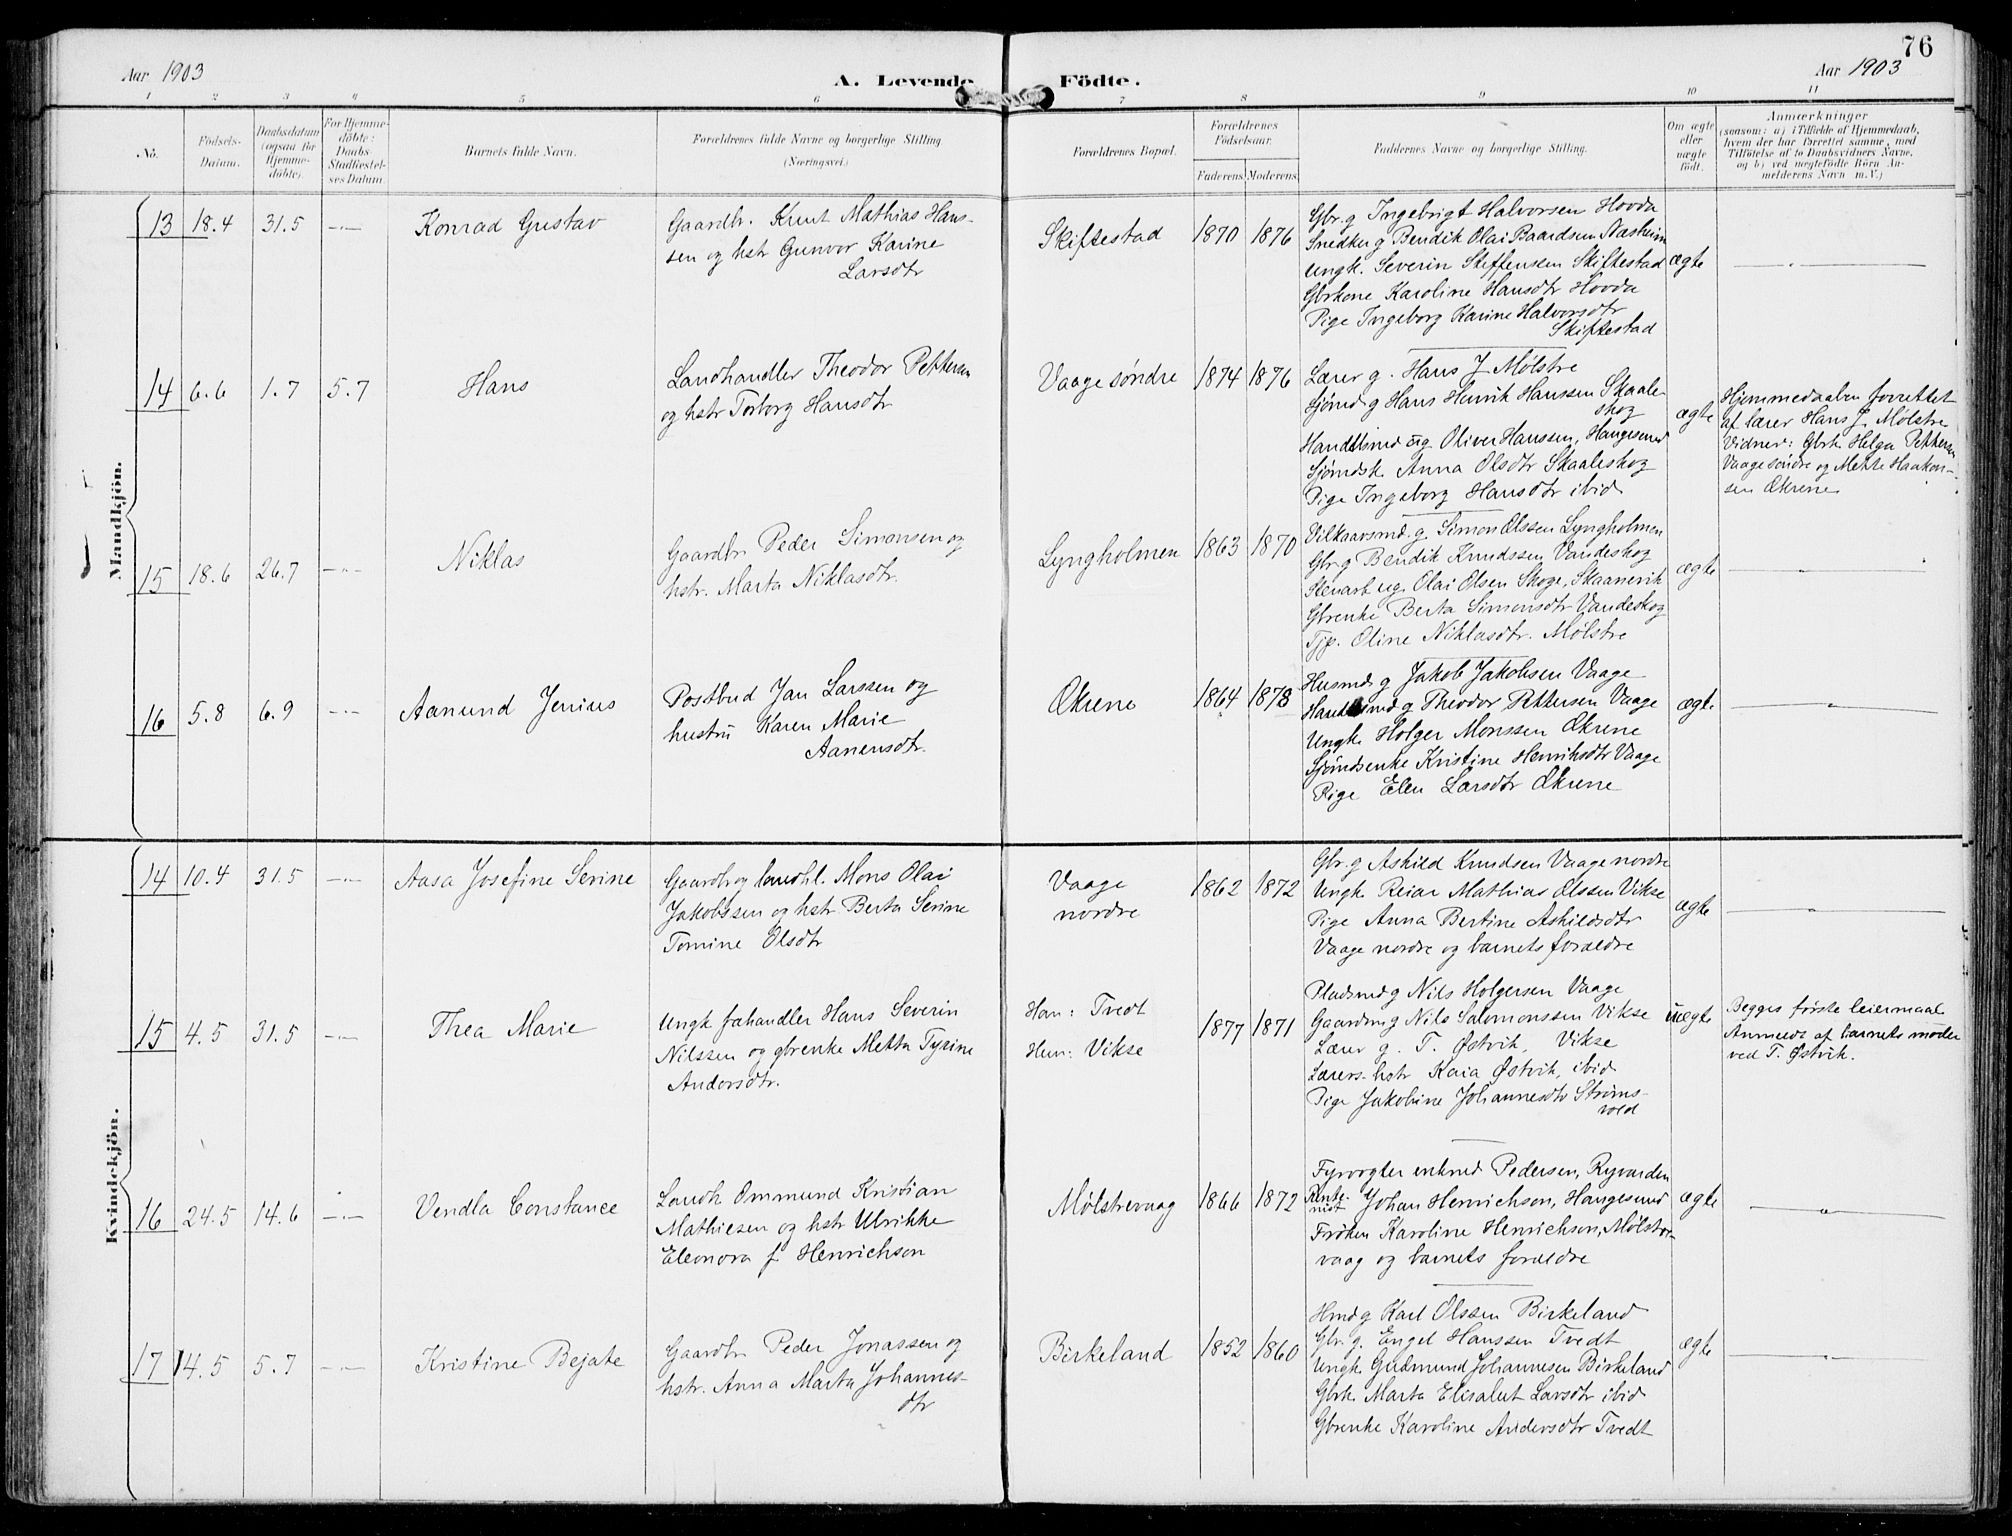 76
Aar 1903
A. Levende Födte.
Aar 1903
1 2 3 4 5 6 7 8 9 10 11
No.
Födsels-
Datum.
Daabsdatum
(ogsaa for
Hjemme-
døbte).
For Hjemme-
døbte:
Daabs-
Stadfæstel-
ses Datum.
Barnets fulde Navn.
Forældrenes fulde Navne og borgerlige Stilling
(Næringsvei.)
Forældrenes Bopæl.
Forældrenes
Födselsaar.
Faderens. Moderens.
Faddernes Navne og borgerlige Stilling.
Om ægte
eller
uægte
født.
Anmærkninger
(saasom: a) i Tilfælde af Hjemmedaab,
hvem der har forrettet samme, med
Tilføielse af to Daabsvidners Navne,
og b) ved uægtefødte Börn An-
melderens Navn m. V.)
Mandkjön.
13 18.4 31.5 —"—
Konrad Gustav
Gaardbr. Knut Mathias Hans-
sen og hstr Gunvor Karine
Larsdtr
Skiftestad
1870 1876
Gbr. g Ingebrigt Halvorsen Hovda
Snedker g Bendik Olai Baardsen Næsheim
Ungk. Severin Steffensen Skiftestad
Gbrkone Karoline Hansdtr Hovda
Pige Ingeborg Karine Halvorsdtr
Skiftestad
ægte
—"—
14 6.6 1.7 5.7
Hans
Landhandler Theodor Pettersen
og hstr Torborg Hansdtr
Vaage søndre
1874 1876
Lærer g. Hans J Mølstre
Sjømd g Hans Henrik Hanssen Skaale-
skog
Handelsmd ug Oliver Hanssen, Haugesund
Sjømdsk Anna Olsdtr Skaaleskog
Pige Ingeborg Hansdtr ibid
ægte
Hjemmedaaben forrettet
af lærer Hans J. Mølstre
Vidner: Gbrk Helga Pettersen
Vaage søndre og Mette Haakon-
sen Økrene
15 18.6 26.7 —"—
Niklas
Gaardbr Peder Simonsen og
hstr. Marta Niklasdtr.
Lyngholmen
1863 1870
Vilkaarsmd. g. Simon Olssen Lyngholmen
Gbr g Bendik Knudssen Vandeskog
Stenarb ug. Olai Olsen Skoge, Skaanevik
Gbrenke Berta Simonsdtr Vandeskog
Tjp. Oline Niklasdtr. Mølstre
ægte
—"—
16 5.8 6.9 —"—
Aanund Jenius
Postbud Jan Larssen og
hustru Karen Marie
Aanensdtr.
Økrene
1864 1878
Husmd g Jakob Jakobsen Vaage
Handelsmd g Theodor Pettersen Vaage
Ungk Holger Monssen Økrene
Sjømdsenke Kristine Henriksdtr Vaage
Pige Elen Larsdtr Økrene
ægte
—"—
Kvindekjön.
14 10.4 31.5 —"—
Aasa Josefine Serine
Gaardb og landhl. Mons Olai
Jakobssen og hstr Berta Serine
Tomine Olsdtr
Vaage
nordre
1862 1872
Gbr. g Askild Knudsen Vaage nordre
Ungk Reiar Mathias Olssen Vikse
Pige Anna Bertine Askildsdtr
Vaage nordre og barnets forældre
ægte
—"—
15 4.5 31.5 —"—
Thea Marie
Ungk fæhandler Hans Severin
Nilssen og gbrenke Metta Tyrine
Andersdtr.
Han: Tvedt
Hun: Vikse
1877 1871
Pladsmd g Nils Holgersen Vaage
Gaardm g Nils Salomonssen Vikse
Lærer g. T. Østvik, Vikse
Lærers hstr Kaia Østvik, ibid
Pige Jakobine Johannesdtr Strøms-
vold
uægte
Begges første leiermaal
Anmeldt af barnets moder
ved T. Østvik.
16 24.5 14.6 —"—
Vendla Constance
Landh. Ommund Kristian
Mathiesen og hstr Ulrikke
Eleonora f Henrichson
Mølstrevaag
1866 1872
Fyrvogter enkmd Pedersen, Ryvarden
Rente-
nist Johan Henrichson, Haugesund
Frøken Karoline Henrichson, Mølstre-
vaag og barnets forældre
ægte
—"—
17 14.5 5.7 —"—
Kristine Bejate
Gaardbr Peder Jonassen og
hstr. Anna Marta Johannes-
dtr
Birkeland
1852 1860
Hmd g Karl Olssen Birkeland
Gbr. g. Engel Hanssen Tvedt
Ungk Gudmund Johannesen Birkeland
Gbrk Marta Elisabet Larsdtr ibid
Gbrenke Karoline Andersdtr Tvedt
ægte
—"—